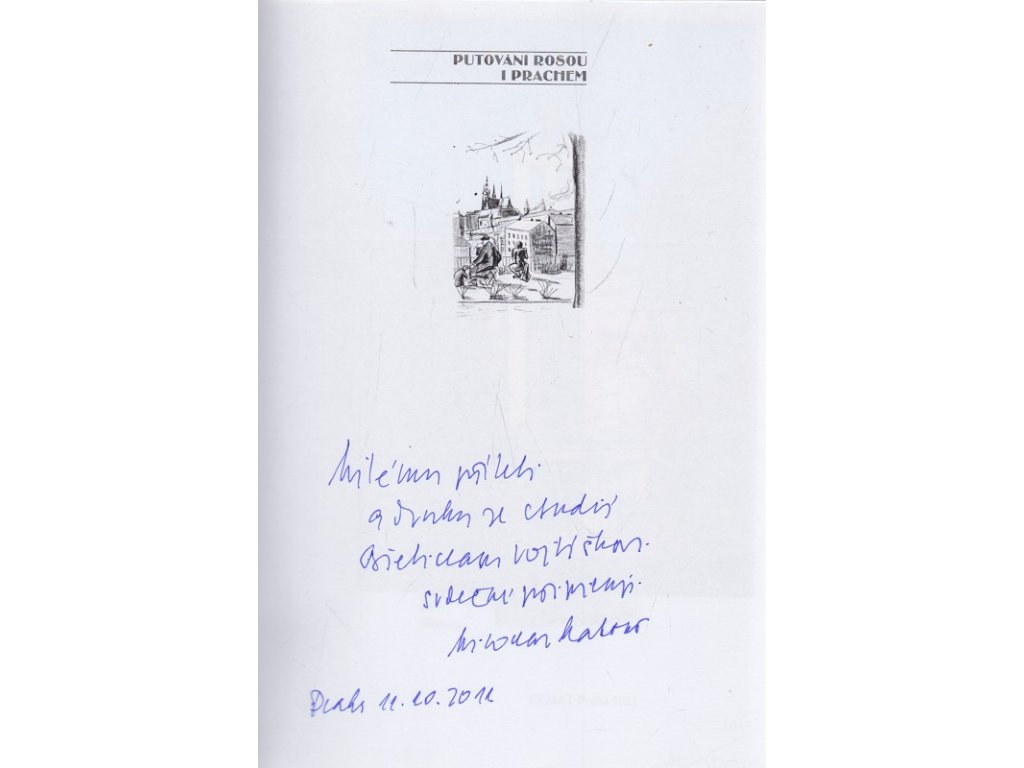 PUTOVÁNÍ ROSOU
I PRACHEM
Milému příteli
a druhu ze studií
Břetislavu Vojtíškovi
srdečně připisuji
Miroslav
Praha 11.10.2012